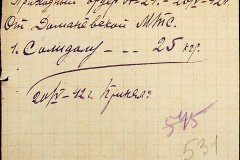 Приходный ордер № 24 - 20/IV-42г.
От Доманёвской МТС.
1. Солидолу - - - 25 кгр.
20/IV-42г. Принял:
545
531